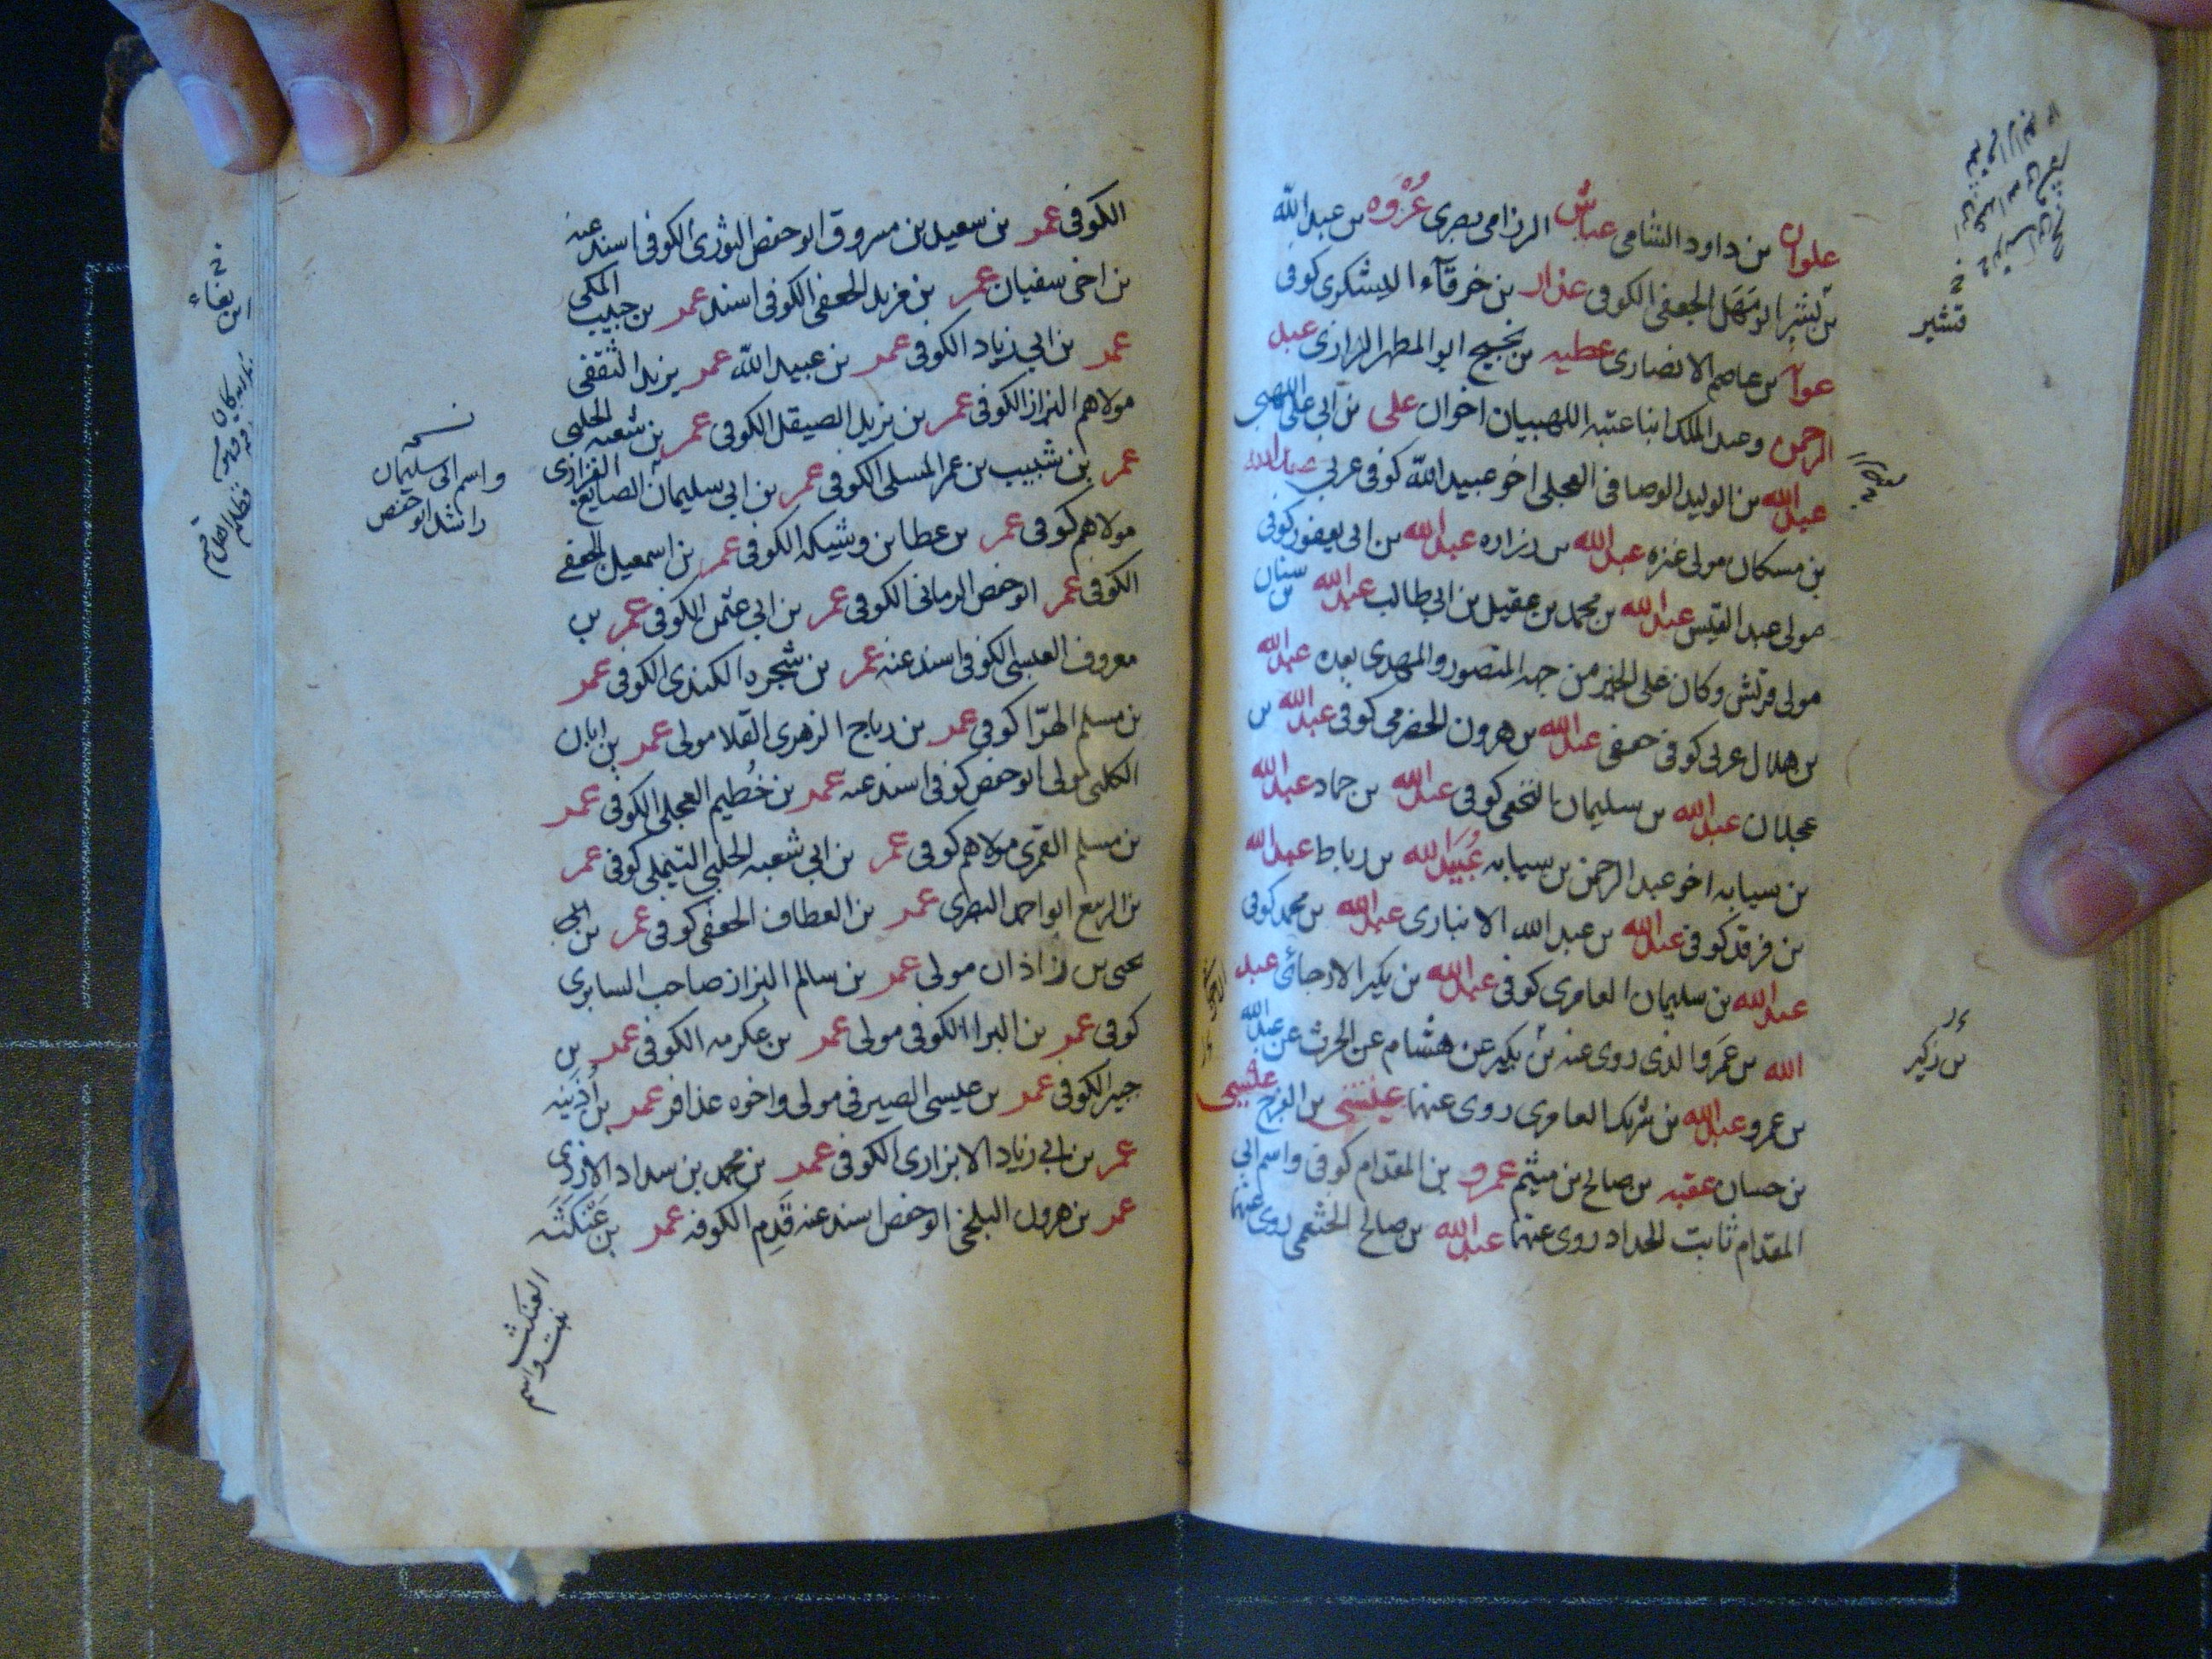 علوان بن داود الشامى عباس الرزامى بصرى عروه بن عبد الله
بن بشير ابو مهل الجعفى الكوفى عذار بن خرقآء اليشكرى كوفى
بن عاصم الانصارى عطيه بن نجيح ابو المطهر الرازى عبد
الرحمن وعبد الملك ابنا عتبه اللهبيان اخوان على بن ابى على اللهبى
عبد الله بن الوليد الوصافى العجلى اخو عبيد الله كوفى عربى عبد الله
بن مسكان مولى عنزه عبد الله بن زراره عبد الله بن ابى يعفور كوفى
مولى عبد القيس عبد الله بن محمد بن عقيل بن ابى طالب عبد الله بن سنان
مولى قريش وكان على الخير من جهه المنصور والمهدى بعده عبد الله
بن هلال عربى كوفى جعفى عبد الله بن هرون الحضرمى كوفى عبد الله بن
عجلان عبد الله بن سليمان النخعى كوفى عبد الله بن حماد عبد الله
بن سيابه اخو عبد الرحمن بن سيابه عبيد الله بن رباط عبد الله
بن فرقد كوفى عبد الله بن عبد الله الانبارى عبد الله بن محمد كوفى
عبد الله بن سليمان العامرى كوفى عبد الله بن بكير الارجائى عبد
الله بن عمرو الذى روى عنه بن بكير عن هشام عن الحرث عن عبد الله
بن عمرو عبد الله بن شريك العامرى روى عنهما
بن حسان عقبه بن صالح بن ميثم عمرو بن المقدام كوفى واسم ابى
المقدام ثابت الحداد روى عنهما عبد الله بن صالح الخثعمى روى عنهما
قشير
بن زكير
الكوفى عمر بن سعيد بن مسروق ابو حفص الثورى الكوفى اسند عنه
بن اخى سفيان عمر بن مزيد الجعفى الكوفى اسند عمر بن حبيب المكى
عمر بن ابى زياد الكوفى عمر بن عبيد الله عمر يزيد الثقفى
مولاهم البزاز الكوفى عمر بن يزيد الصيقل الكوفى عمر بن شعبه الحلبى
عمر بن شبيب بن عمر المسلى الكوفى عمر بن ابى سليمان الصايغ الفزارى
مولاهم كوفى عمر بن عطا بن وشيكه الكوفى عمر بن اسمعيل الجعفى
الكوفى عمر ابو حفص الرمانى الكوفى عمر بن ابى عثمن الكوفى عمر بن
معروف العبسى الكوفى اسند عنه عمر بن شجره الكندى الكوفى عمر
بن مسلم الهرّا كوفى عمر بن رباح الزهرى القلا مولى عمر بن ابان
الكلبى مولى ابو حفص كوفى اسند عنه عمر بن خُطيم العجلى الكوفى عمر
بن مسلم القمرى مولاهم كوفى عمر بن ابى شعبه الحلبى التيملى كوفى عمر
بن الربيع ابو احمد البصرى عمر بن العطاف الجعفى كوفى عمر بن ابى
يحيى بن زاذان مولى عمر بن سالم البزاز صاحب السابرى
كوفى عمر بن البرا الكوفى مولى عمر بن عكرمه الكوفى عمر بن
جبير الكوفى عمر بن عيسى الصيرفى مولى واخوه عذافر عمر بن اذينه
عمر بن ابى زياد الابزارى الكوفى عمر بن محمد بن سداد الازدى
عمر بن هرون البلخى ابو حفص اسند عنه قَدِم الكوفه عمر بن عَنْكَثَه
نسخه
واسم ابى سليمان
راشد ابو حفص
العنكث
نبت واسم